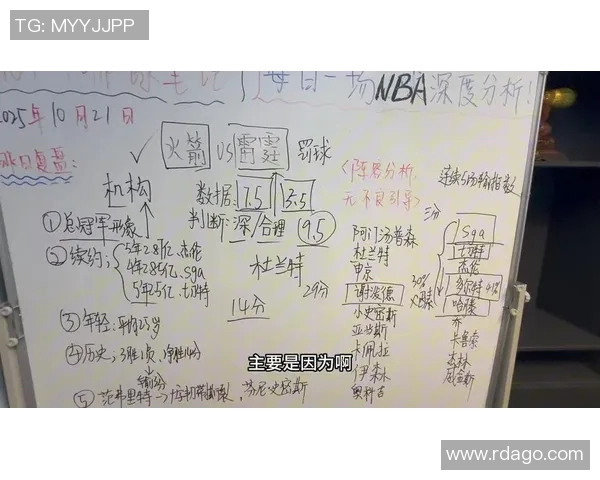 TG: MYYJJPP
每日一场NBA深度分析!
2025年10月21日
昨日复盘:
火箭 US 雷霆 罚球
机构
数据: 7.5 13.5
判断: 深/合理 9.5
<阵容分析,
无不良引导>
连续5场输指数
①总冠军形象
②续约:
5年2.87亿.杰伦
4年2.85亿.sga
5年2.5亿.切特
杜兰特
14分
29分
③年轻:平均25岁
④历史,3胜1负,净胜14分
⑤范弗里特
芬尼史密斯
阿门汤普森
杜兰特
申京
谢泼德
小史密斯
亚当斯
卡佩拉
伊森
奥科吉
三分
30%
sga
切特
杰伦
多尔特 41%
哈滕
乔
卡鲁索
杰林
威金斯
主要是因为啊
www.rdago.com